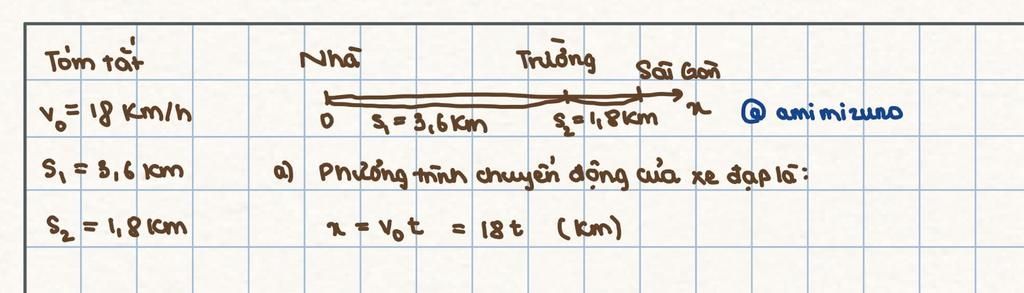 Tóm tắt
Nhà Trường Sài Gòn
v₀ = 18 km/h
0 S₁ = 3,6 km S₂ = 1,8 km x @ amimizuno
S₁ = 3,6 km
a) Phương trình chuyển động của xe đạp là:
S₂ = 1,8 km
x = v₀t = 18t (km)